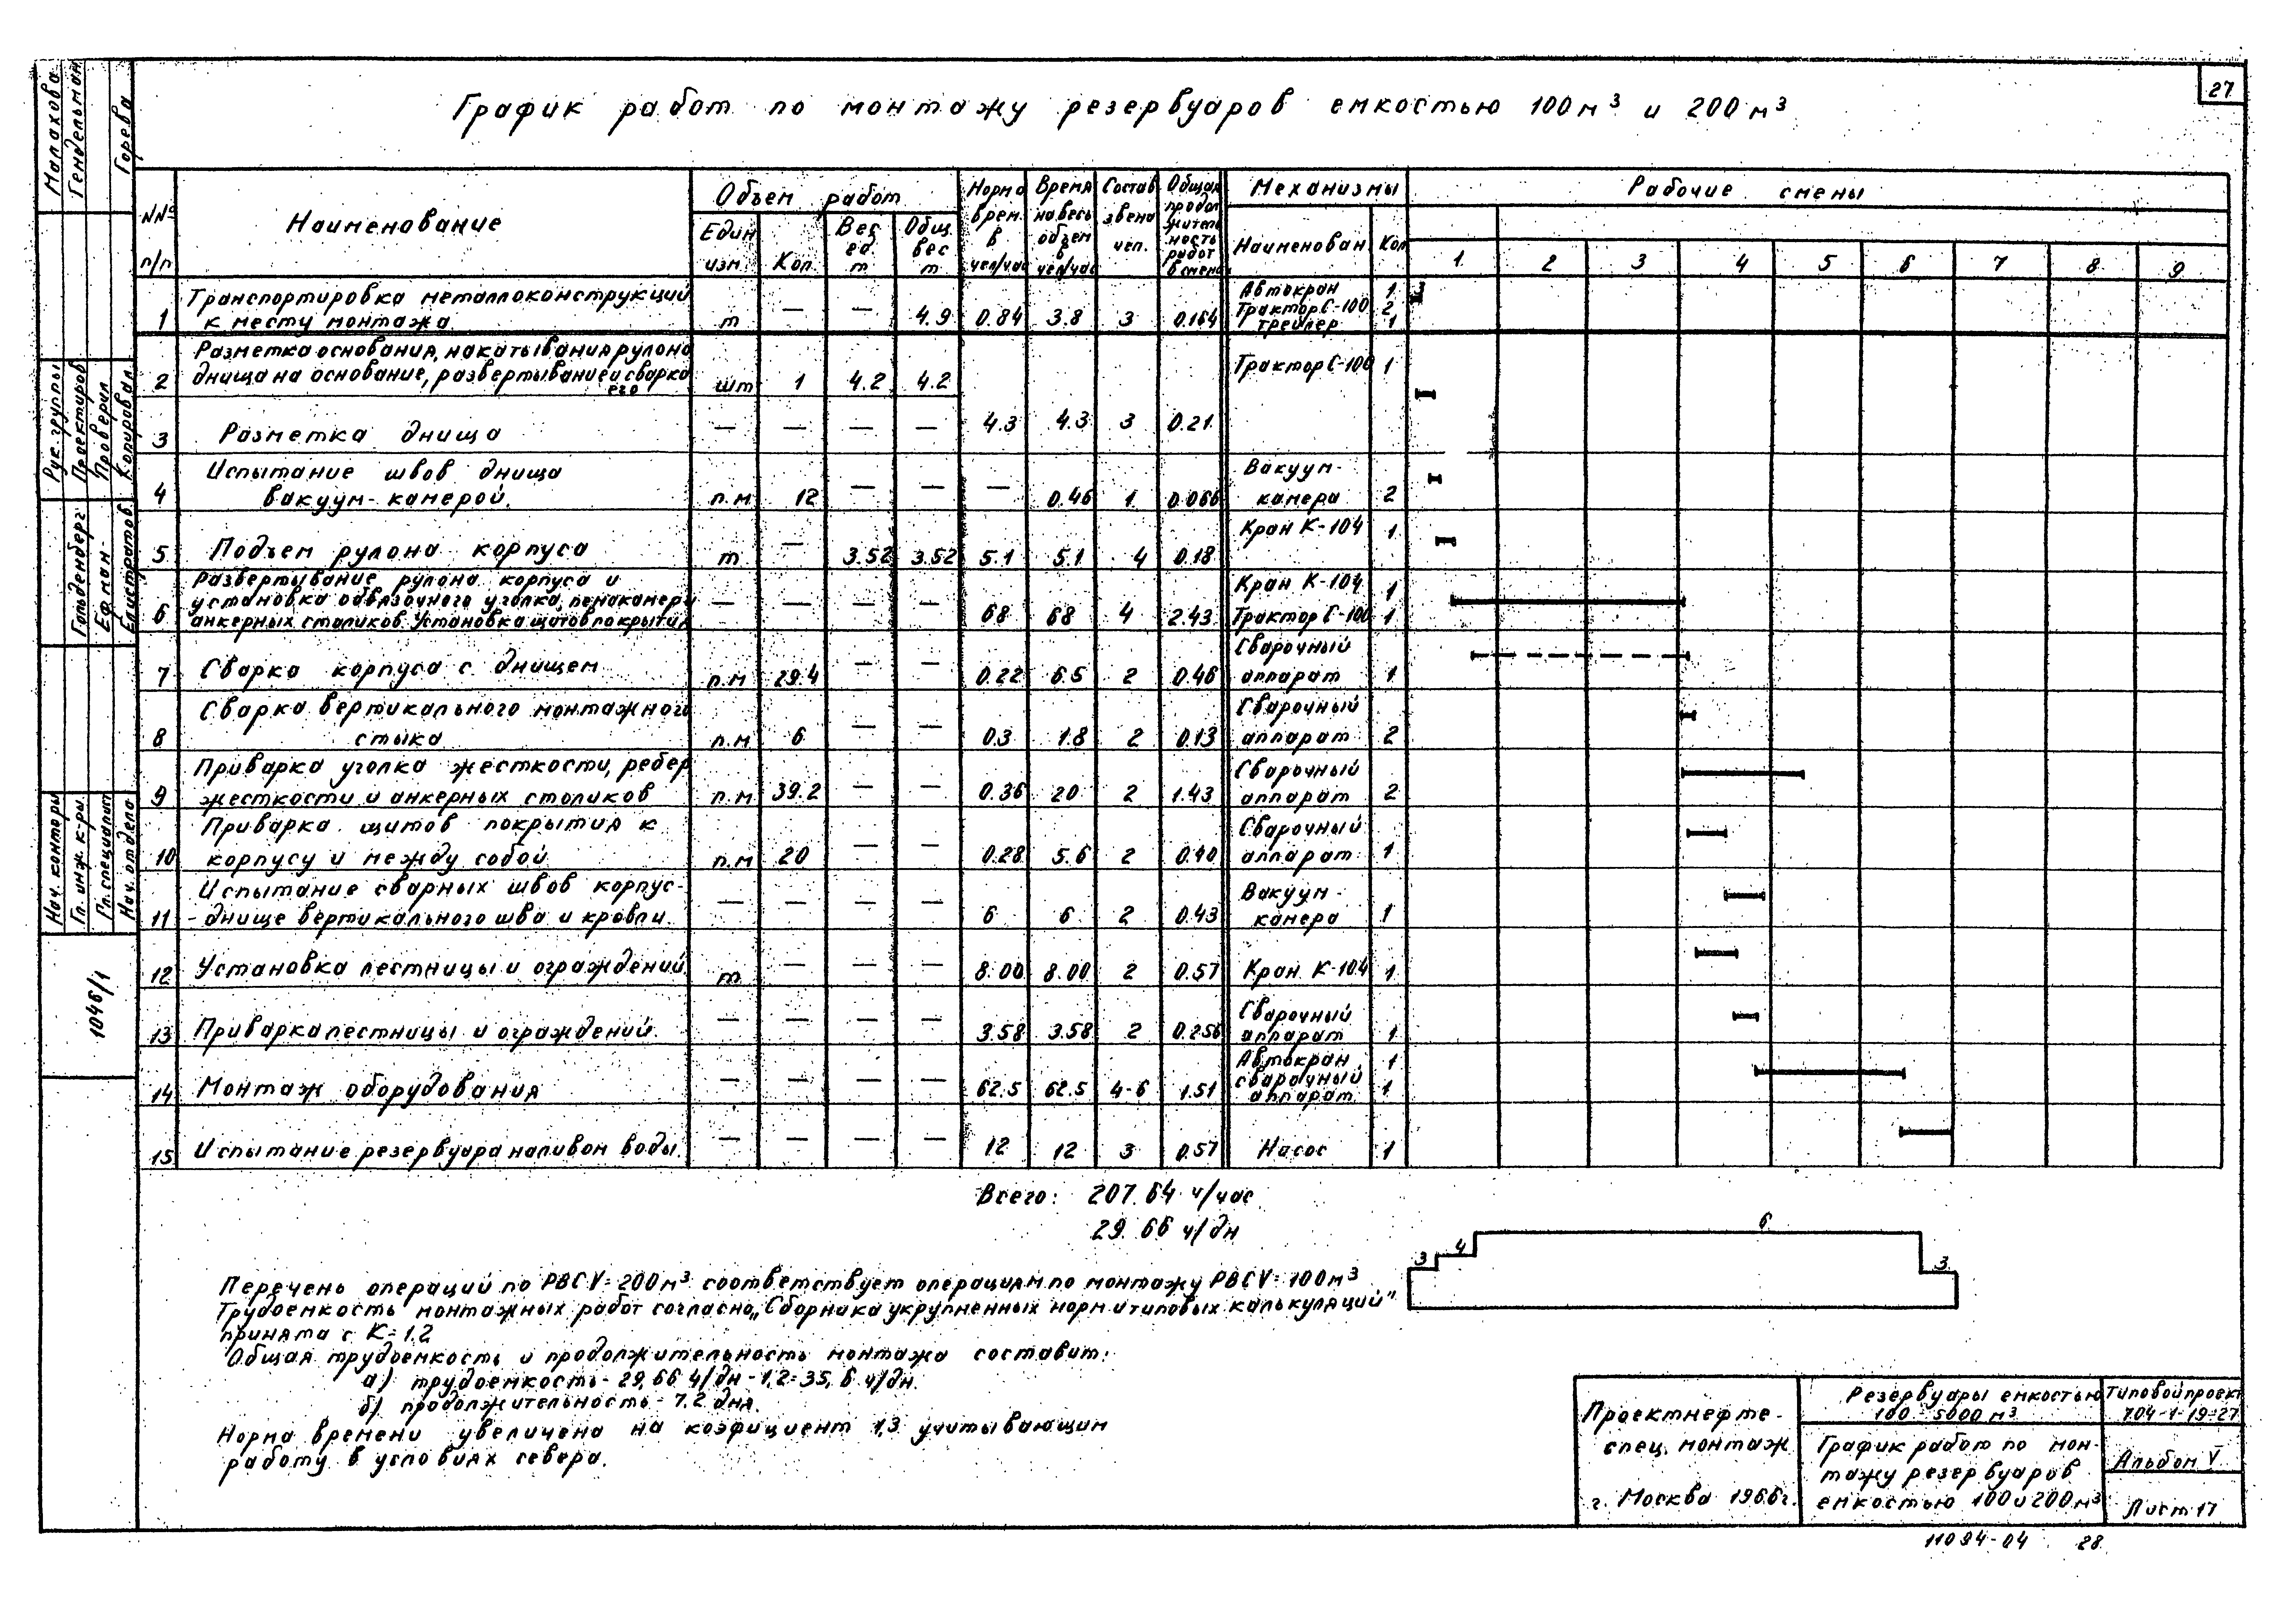 27
График работ по монтажу резервуаров емкостью 100 м³ и 200 м³
NNº п/п
Наименование
Объем работ
Един. изм.
Кол.
Вес ед. т
Общ. вес т
Норма врем. в чел/час
Время на весь объем в чел/час
Состав звена чел.
Общая продолжительность работ в смен.
Механизмы
Наименован.
Кол
Рабочие смены
1 2 3 4 5 6 7 8 9
1 Транспортировка металлоконструкций к месту монтажа т — — 4.9 0.84 3.8 3 0.164 Автокран 1 Трактор С-100 2 трейлер 1
3
2 Разметка основания, накатывания рулона днища на основание, развертывание и сварка его шт 1 4.2 4.2 Трактор С-100 1
3 Разметка днища — — — — 4.3 4.3 3 0.21
4 Испытание швов днища вакуум-камерой. п.м 12 — — — 0.46 1 0.066 Вакуум-камера 2
5 Подъем рулона корпуса т — 3.52 3.52 5.1 5.1 4 0.18 Кран К-104 1
6 Развертывание рулона корпуса и установка обвязочного уголка, пенокамеры анкерных столиков. Установка щитов покрытия — — — — 68 68 4 2.43 Кран К-104 1 Трактор С-100 1
7 Сварка корпуса с днищем п.м 29.4 — — 0.22 6.5 2 0.46 Сварочный аппарат 1
8 Сварка вертикального монтажного стыка п.м 6 — — 0.3 1.8 2 0.13 Сварочный аппарат 2
9 Приварка уголка жесткости, ребер жесткости и анкерных столиков п.м 39.2 — — 0.36 20 2 1.43 Сварочный аппарат 2
10 Приварка щитов покрытия к корпусу и между собой п.м 20 — — 0.28 5.6 2 0.40 Сварочный аппарат 1
11 Испытание сварных швов корпус-днище вертикального шва и кровли. — — — — 6 6 2 0.43 Вакуум-камера 1
12 Установка лестницы и ограждений т — — — 8.00 8.00 2 0.57 Кран К-104 1
13 Приварка лестницы и ограждений. — — — — 3.58 3.58 2 0.256 Сварочный аппарат 1
14 Монтаж оборудования — — — — 62.5 62.5 4-6 1.51 Автокран 1 сварочный аппарат 1
15 Испытание резервуара наливом воды. — — — — 12 12 3 0.57 Насос 1
Всего: 207.64 ч/час
29.66 ч/дн
3 4 6 3
Перечень операций по РВС V=200м³ соответствует операциям по монтажу РВС V=100м³
Трудоемкость монтажных работ согласно „Сборника укрупненных норм и типовых калькуляций"
принята с К=1.2
Общая трудоемкость и продолжительность монтажа составит:
а) трудоемкость - 29,66 ч/дн - 1,2=35,6 ч/дн.
б) продолжительность - 7.2 дня.
Норма времени увеличена на коэфициент 1,3 учитывающим
работу в условиях севера.
Проектнефте-
спец. монтаж
г. Москва 1966г.
Резервуары емкостью
100-5000 м³
График работ по мон-
тажу резервуаров
емкостью 100 и 200м³
Типовой проект
704-1-19÷27
Альбом V
Лист 17
11094-04 28
Малахова
Гендельман
Горева
Рук. группы
Проектиров.
Проверил
Копировал
Гольденберг
Ефман
Елистратов
Нач. конторы
Гл. инж. к-ры.
Гл. специалист
Нач. отдела
1046/1